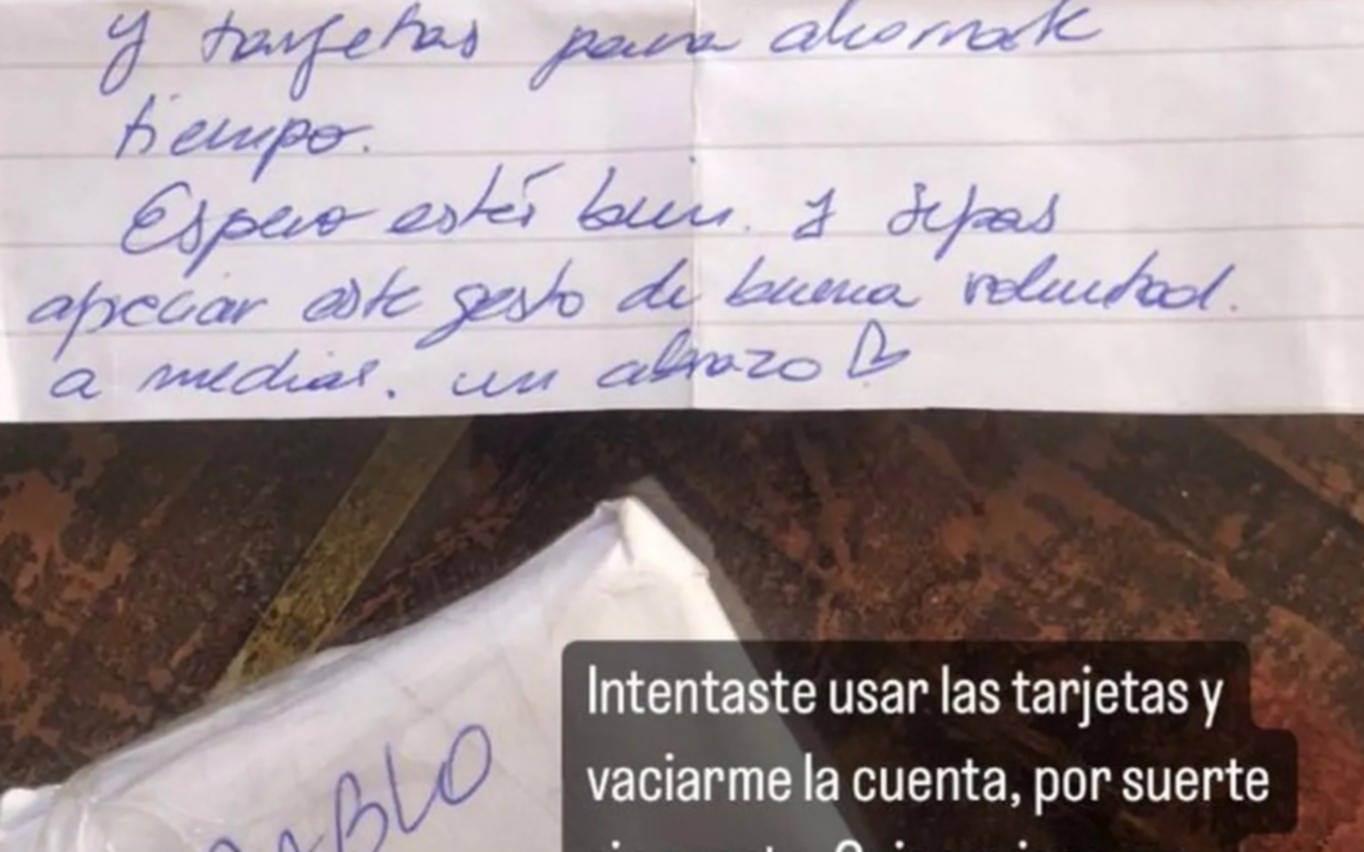 y tarjetas para ahorrarte
tiempo.
Espero estés bien. y sepas
apreciar este gesto de buena voluntad.
a medias. un abrazo
PABLO
Intentaste usar las tarjetas y
vaciarme la cuenta, por suerte